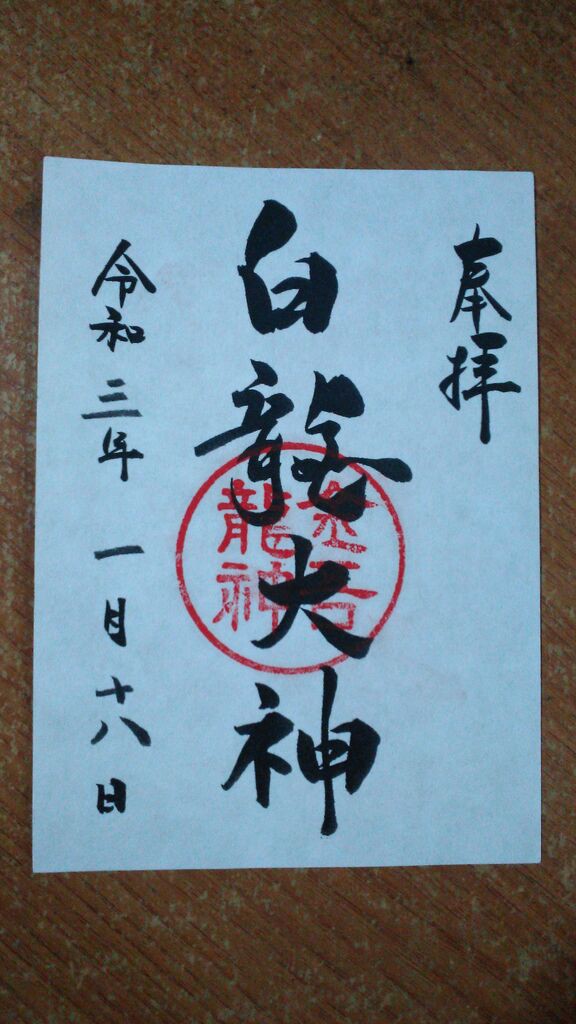 奉拝
白龍大神
龍神
令和三年一月十八日